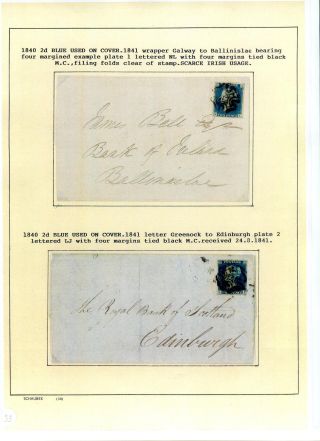 1840 2d BLUE USED ON COVER.1841 wrapper Galway to Ballinislac bearing
four margined example plate 1 lettered NL with four margins tied black
M.C.,filing folds clear of stamp.SCARCE IRISH USAGE.
James Bell Esqr
Bank of Ireland
Ballinasloe
1840 2d BLUE USED ON COVER.1841 letter Greenock to Edinburgh plate 2
lettered LJ with four margins tied black M.C.received 24.8.1841.
The Royal Bank of Scotland
Edinburgh
53